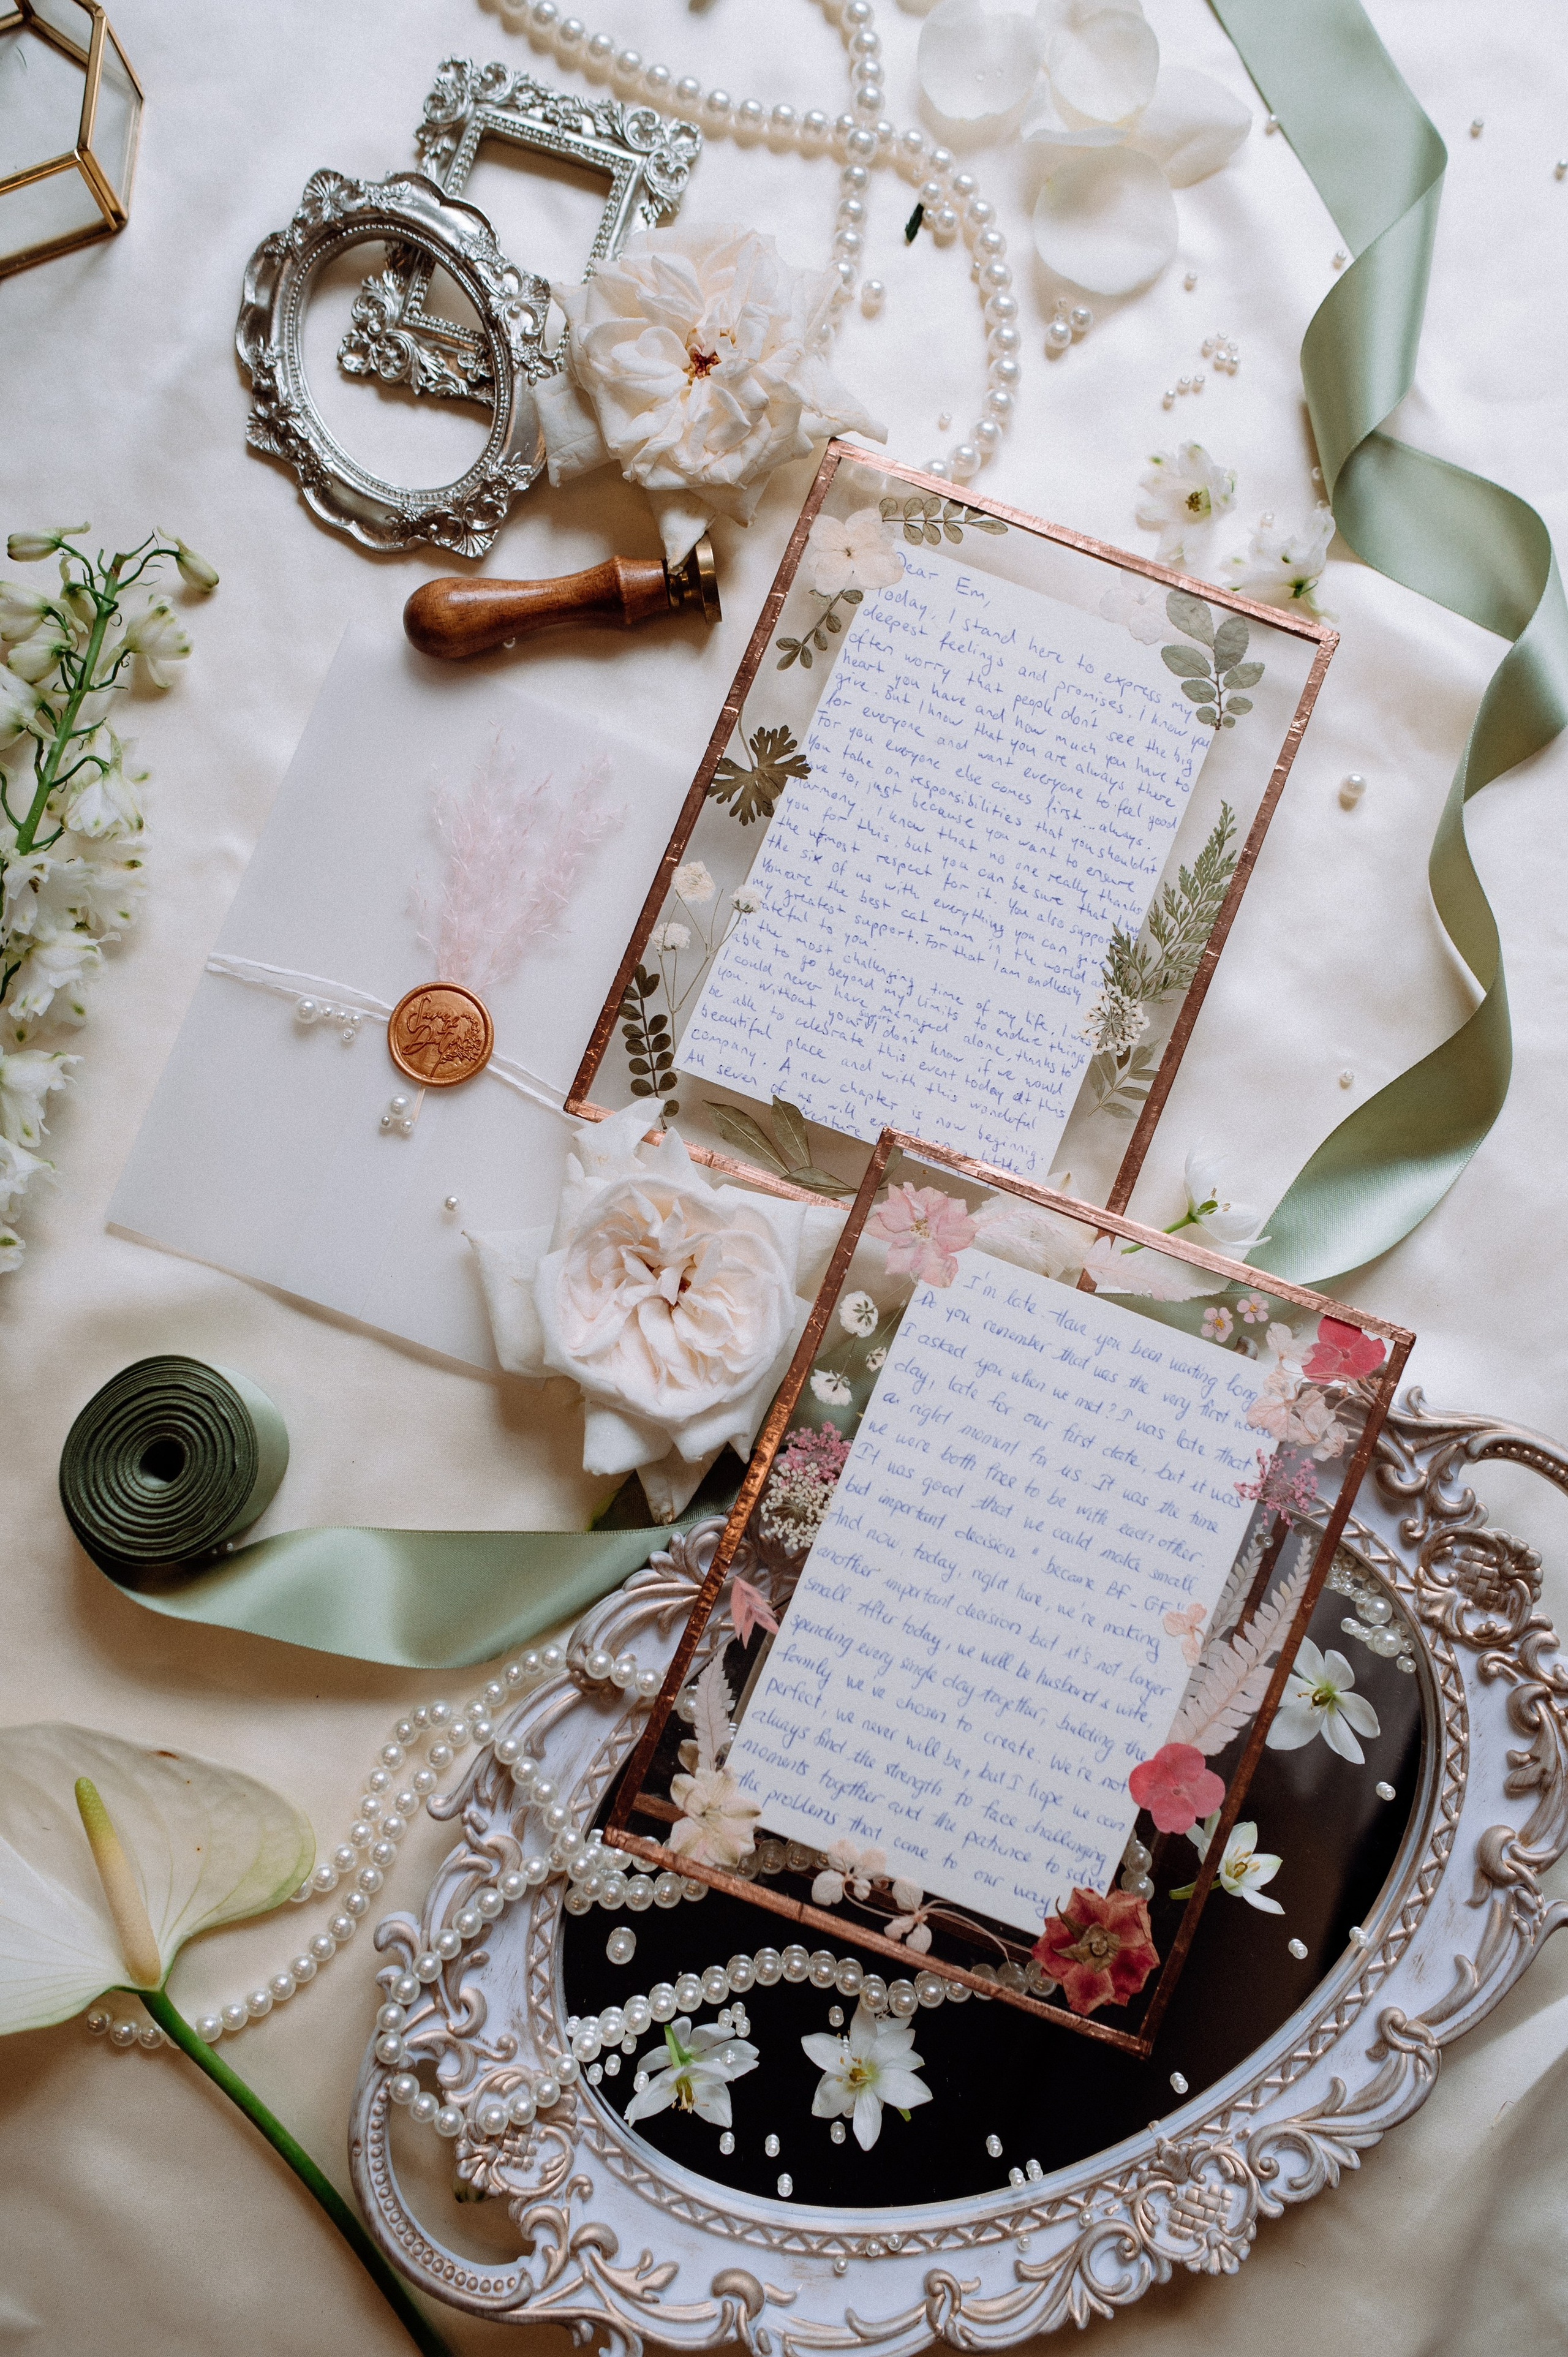 Save
the
Date
Dear Em,
Today, I stand here to express my
deepest feelings and promises. I know you
often worry that people don't see the big
heart you have and how much you have to
give. But I know that you are always there
for everyone and want everyone to feel good
For you everyone else comes first...always.
You take on responsibilities that you shouldn't
have to, just because you want to ensure
harmony. I know that no one really thanks
you for this, but you can be sure that I have
the utmost respect for it. You also support
the six of us with everything you can give
You are the best cat mom in the world and
my greatest support. For that I am endlessly
grateful to you.
In the most challenging time of my life, I was
able to go beyond my limits to endure things
I could never have managed alone, thanks to
you. Without your support I don't know if we would
be able to celebrate this event today at this
beautiful place and with this wonderful
company. A new chapter is now beginnig.
All seven of us will this little
I'm late. Have you been waiting long
Do you remember that was the very first words
I asked you when we met? I was late that
day, late for our first date, but it was
a right moment for us. It was the time
we were both free to be with each other.
It was good that we could make small
but important decision " became BF - GF "
And now, today, right here, we're making
another important decision but it's not longer
small. After today, we will be husband & wife,
spending every single day together, building the
family we've chosen to create. We're not
perfect, we never will be, but I hope we can
always find the strength to face challenging
moments together and the patience to solve
the problems that come to our way